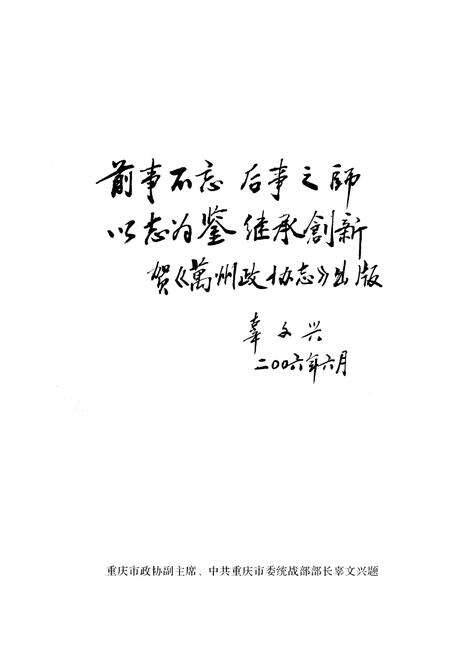 前事不忘 后事之師
以志为鉴 继承創新
贺《萬州政协志》出版
辜文兴
二00六年六月
重庆市政协副主席、中共重庆市委统战部部长辜文兴题